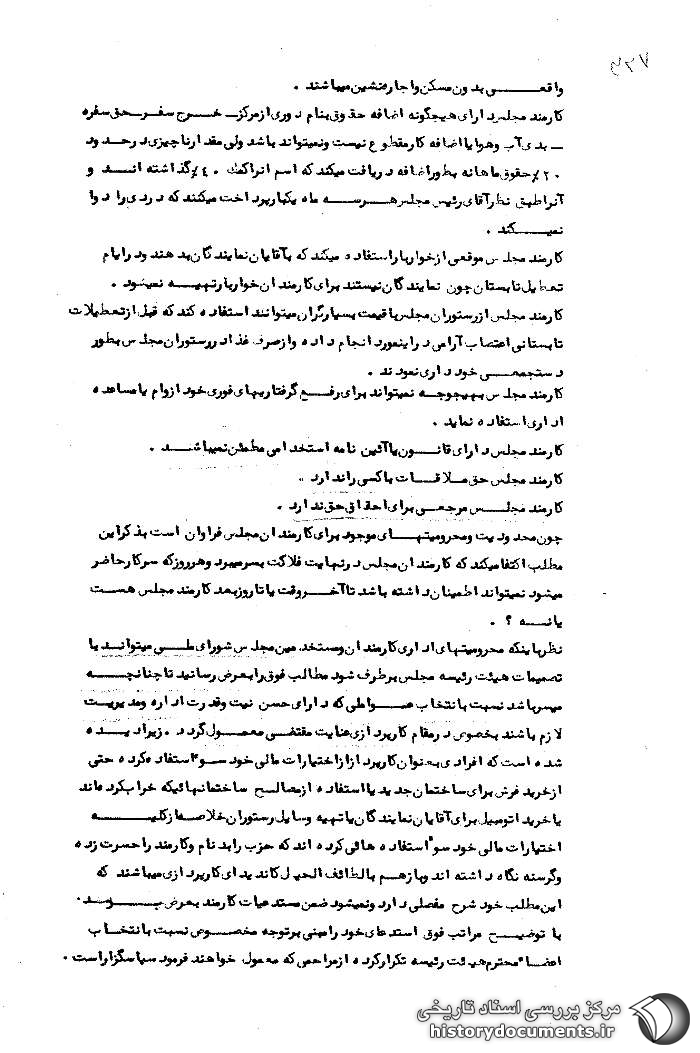 ۷۲۷
واقعی بدون مسکن واجاره نشین میباشند .
کارمند مجلس دارای هیچگونه اضافه حقوق بنام دوری ازمرکز خرج سفر حق سفره
بدی آب وهوا یا اضافه کارمقطوع نیست ونمیتواند باشد ولی مقدارناچیزی درحدود
۲۰٪ حقوق ماهانه بطوراضافه دریافت میکند که اسم آنراکمک ۴۰٪ گذاشته اند و
آنراطبق نظرآقای رئیس مجلس هرسه ماه یکبارپرداخت میکنند که دردی را دوا
نمیکند .
کارمند مجلس موقعی ازخواربار استفاده میکند که بآقایان نمایندگان بدهند ودرایام
تعطیل تابستان چون نمایندگان نیستند برای کارمندان خواربارتهیه نمیشود .
کارمند مجلس ازرستوران مجلس باقیمت بسیارگران میتوانند استفاده کند که قبل ازتعطیلات
تابستانی اعتصاب آرامی دراینمورد انجام داده وازصرف غذا دررستوران مجلس بطور
دستجمعی خودداری نمودند .
کارمند مجلس بهیچوجه نمیتواند برای رفع گرفتاریهای فوری خود ازوام یامساعده
اداری استفاده نماید .
کارمند مجلس دارای قانون یاآئین نامه استخدامی مطمئن نمیباشند .
کارمند مجلس حق ملاقات باکسی راندارد .
کارمند مجلس مرجعی برای احقاق حق ندارد .
چون محدودیت ومحرومیتهای موجود برای کارمندان مجلس فراوان است بذکراین
مطلب اکتفامیکند که کارمندان مجلس درنهایت فلاکت بسرمیبرد وهرروزکه سرکارحاضر
میشود نمیتواند اطمینان داشته باشد تاآخروقت یاتاروزبعد کارمند مجلس هست
یانه ؟ .
نظرباینکه محرومیتهای اداری کارمندان ومستخدمین مجلس شورای ملی میتواند با
تصمیمات هیئت رئیسه مجلس برطرف شود مطالب فوق رابعرض رسانید تاچنانچه
میسرباشد نسبت بانتخاب عواملی که دارای حسن نیت وقدرت اداره ومدیریت
لازم باشند بخصوص درمقام کارپردازی عنایت مقتضی معمول گردد . زیرا دیده
شده است که افرادی بعنوان کارپرداز ازاختیارات مالی خود سوء استفاده کرده حتی
ازخرید فرش برای ساختمان جدید یااستفاده ازمصالح ساختمانهائیکه خراب کرده اند
یاخرید اتومبیل برای آقایان نمایندگان یاتهیه وسایل رستوران خلاصه ازکلیه
اختیارات مالی خود سوء استفاده هائی کرده اند که حزب رابدنام وکارمند راحسرت زده
وگرسنه نگاه داشته اند وبازهم بالطائف الحیل کاندیدای کارپردازی میباشند که
این مطلب خود شرح مفصلی دارد ونمیشود ضمن مستدعیات کارمند بعرض برسد .
با توضیح مراتب فوق استدعای خود رامبنی برتوجه مخصوص نسبت بانتخاب
اعضاء محترم هیئت رئیسه تکرارکرده ازمراحمی که معمول خواهند فرمود سپاسگزاراست .
مرکز بررسی اسناد تاریخی
historydocuments.ir